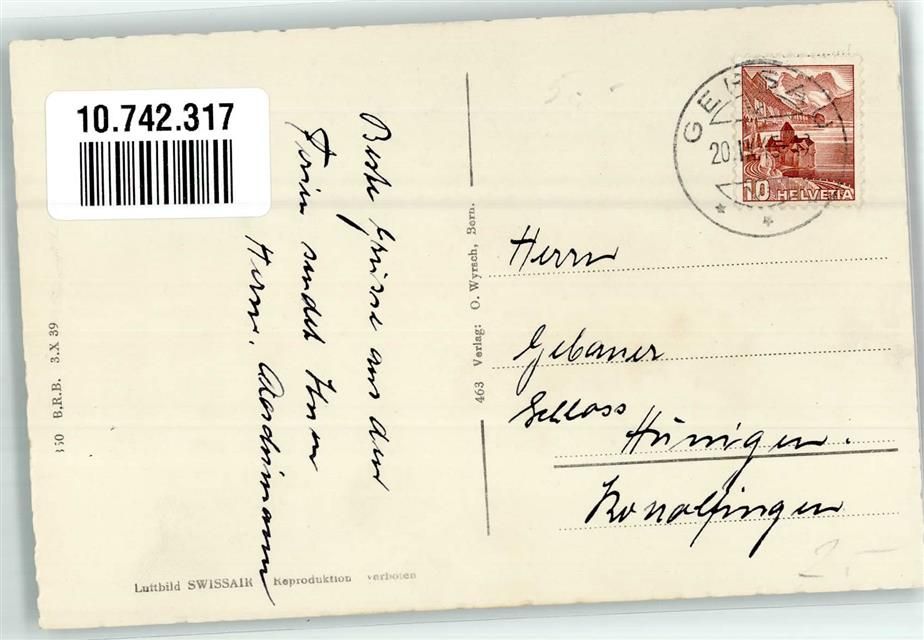 10.742.317
Beste Grüsse aus den
Ferien sendet Ihnen
Herm.
Herrn
Gebauer
Schloss
Hünigen.
Konolfingen
463 Verlag: O. Wyrsch, Bern.
B.R.B. 3.X 39
Luftbild SWISSAIR Reproduktion verboten
GERSAU
20.
10 HELVETIA
2.-